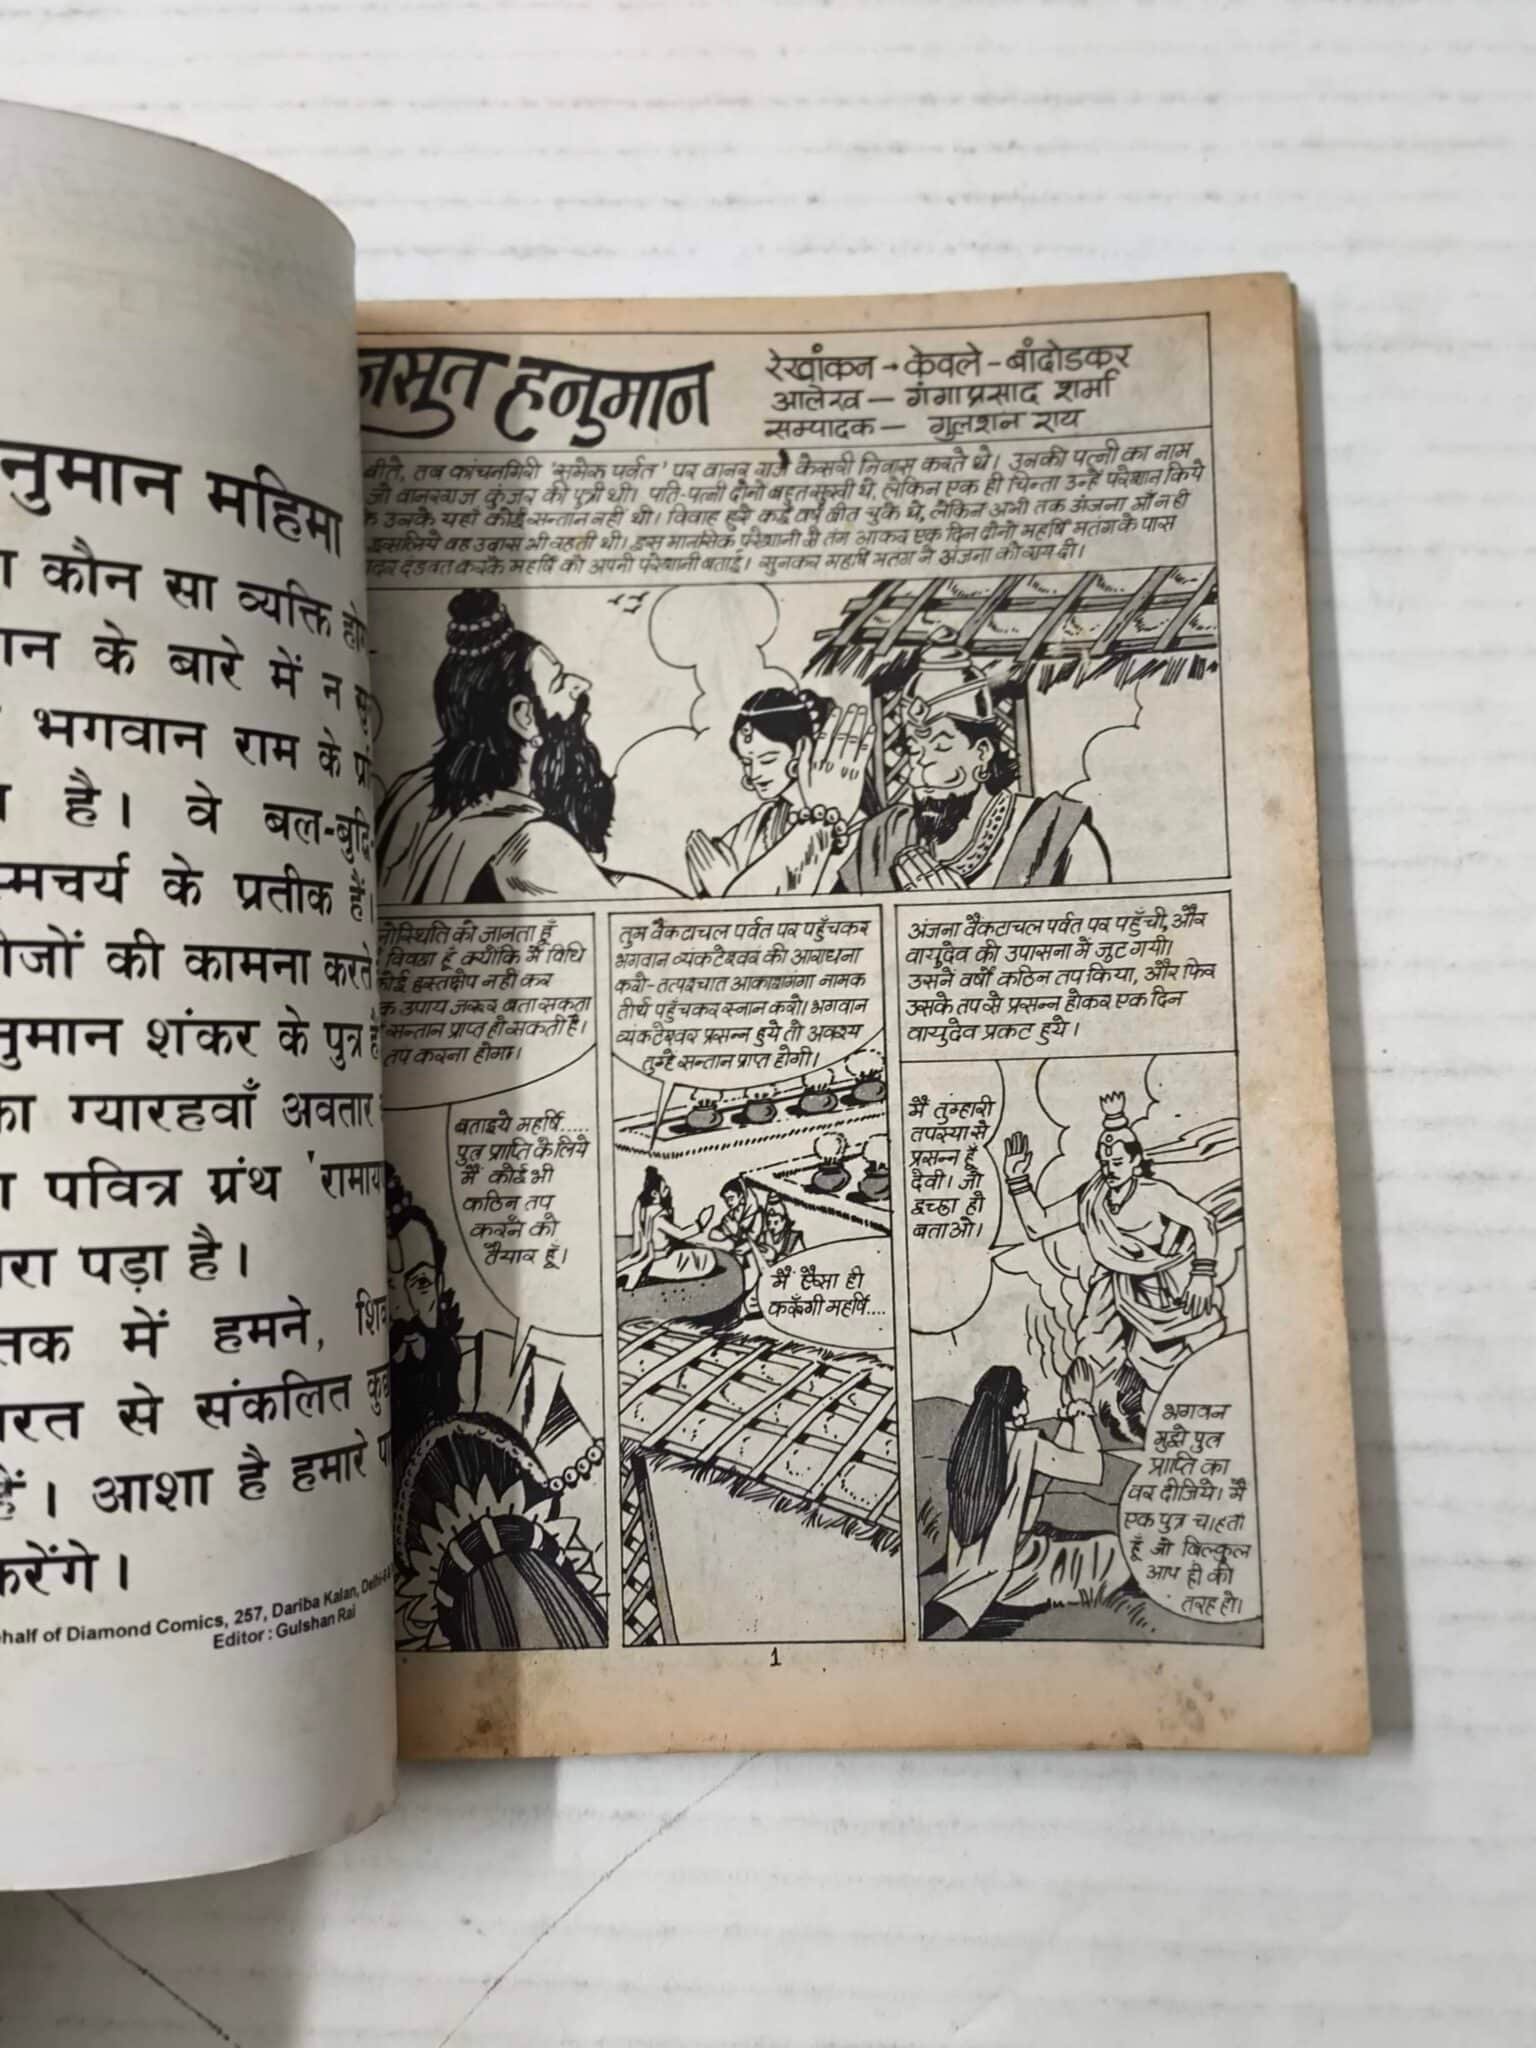 नुमान महिमा
कौन सा व्यक्ति
के बारे में न
भगवान राम के
है। वे बल-बुद्धि
के प्रतीक हैं।
की कामना करते
नुमान शंकर के पुत्र
ग्यारहवाँ अवतार
पवित्र ग्रंथ 'रामाय
पड़ा है।
में हमने,
से संकलित
हैं। आशा है हमारे
करेंगे।
half of Diamond Comics, 257, Dariba Kalan,
Editor : Gulshan Rai
जसुत हनुमान
रेखांकन - केवले - बांदोडकर
आलेख - गंगाप्रसाद शर्मा
सम्पादक - गुलशन राय
बीते, तब कांचनगिरी 'सुमेरू पर्वत' पर वानर राज केसरी निवास करते थे। उनकी पत्नी का नाम
जो वानरराज कुंजर की पुत्री थी। पति-पत्नी दोनो बहुत सुखी थे, लेकिन एक ही चिन्ता उन्हें परेशान किये
उनके यहाँ कोई सन्तान नहीं थी। विवाह हुये कई वर्ष बीत चुके थे, लेकिन अभी तक अंजना माँ न ही
इसलिये वह उदास भी रहती थी। इस मानसिक परेशानी से तंग आकर एक दिन दोनो महर्षि मतंग के पास
दंडवत करके महर्षि को अपनी परेशानी बताई। सुनकर महर्षि मतंग ने अंजना को राय दी।
को जानता हूँ
विवश हूँ क्योंकि मैं विधि
कोई हस्तक्षेप नहीं कर
उपाय जरूर बता सकता
सन्तान प्राप्त हो सकती है।
तप करना होगा।
बताइये महर्षि.....
पुत्र प्राप्ति के लिये
मैं कोई भी
कठिन तप
करने को
तैयार हूँ।
तुम वैंकटाचल पर्वत पर पहुँचकर
भगवान व्यंकटेश्वर की आराधना
करो- तत्पश्चात आकाशगंगा नामक
तीर्थ पहुँचकर स्नान करो। भगवान
व्यंकटेश्वर प्रसन्न हुये तो अवश्य
तुम्हे सन्तान प्राप्त होगी।
मैं ऐसा ही
करूँगी महर्षि....
अंजना वैंकटाचल पर्वत पर पहुँची, और
वायुदेव की उपासना में जुट गयी।
उसने वर्षों कठिन तप किया, और फिर
उसके तप से प्रसन्न होकर एक दिन
वायुदेव प्रकट हुये।
मैं तुम्हारी
तपस्या से
प्रसन्न हूँ
देवी। जो
इच्छा हो
बताओ।
भगवन
मुझे पुत्र
प्राप्ति का
वर दीजिये। मैं
एक पुत्र चाहती
हूँ जो बिल्कुल
आप ही की
तरह हो।
1